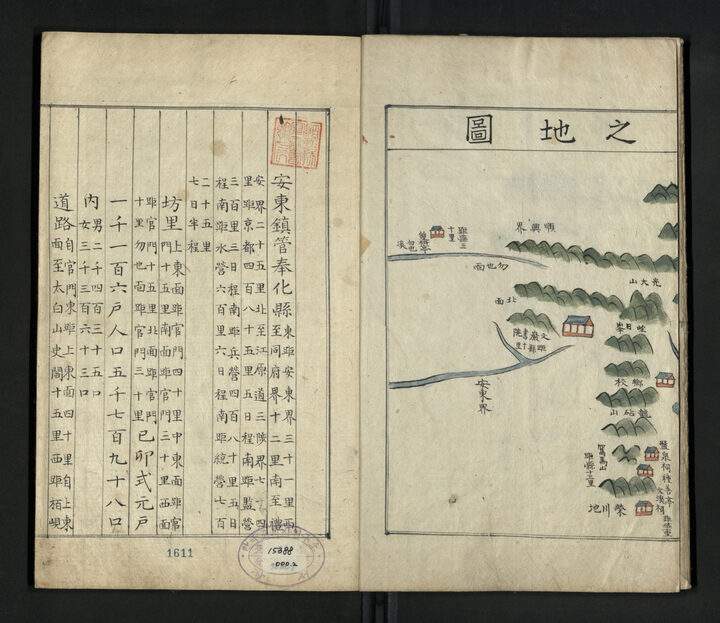 之地圖
順興界
距縣三十里
勿也面
北面
文山大光
安東界
鄉校
榮川地
安東鎮管奉化縣東距安東界三十一里西
至同府界十二里南至禮
安界二十五里北至江原道三陟界七十四
里距京都四百八十五里五日程南距監營
三百里三日程南距兵營四百八十里五日
程南距水營六百里六日程南距統營七百
二十五里
七日半程
坊里上東面距官門四十里中東面距官
門十五里南面距官門三十里西面
距官門十五里北面距官門
十里勿也面距官門三十里己卯式元戶
一千一百六戶人口五千七百九十八口
內男二千四百三十五口
女三千三百六十三口
道路自官門東距上東面四十里自上東
面至太白山史閣十五里西距栢峴
1611
15388
000.2